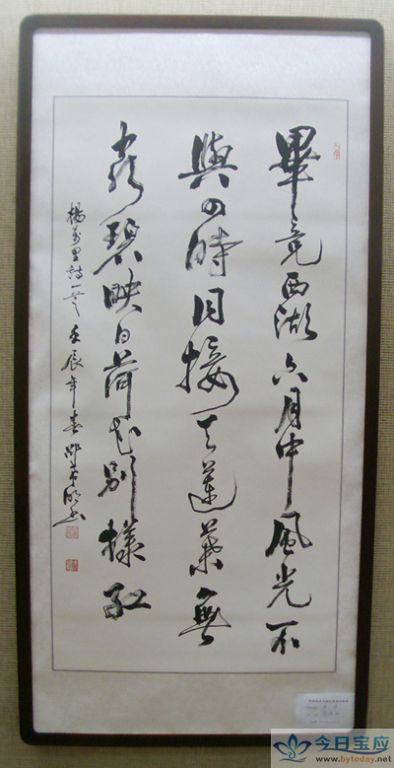 畢竟西湖六月中風光不
與四時同接天蓮葉無
窮碧映日荷花別樣紅
楊萬里詩一首 壬辰年春 書
今日宝应
www.bytoday.net